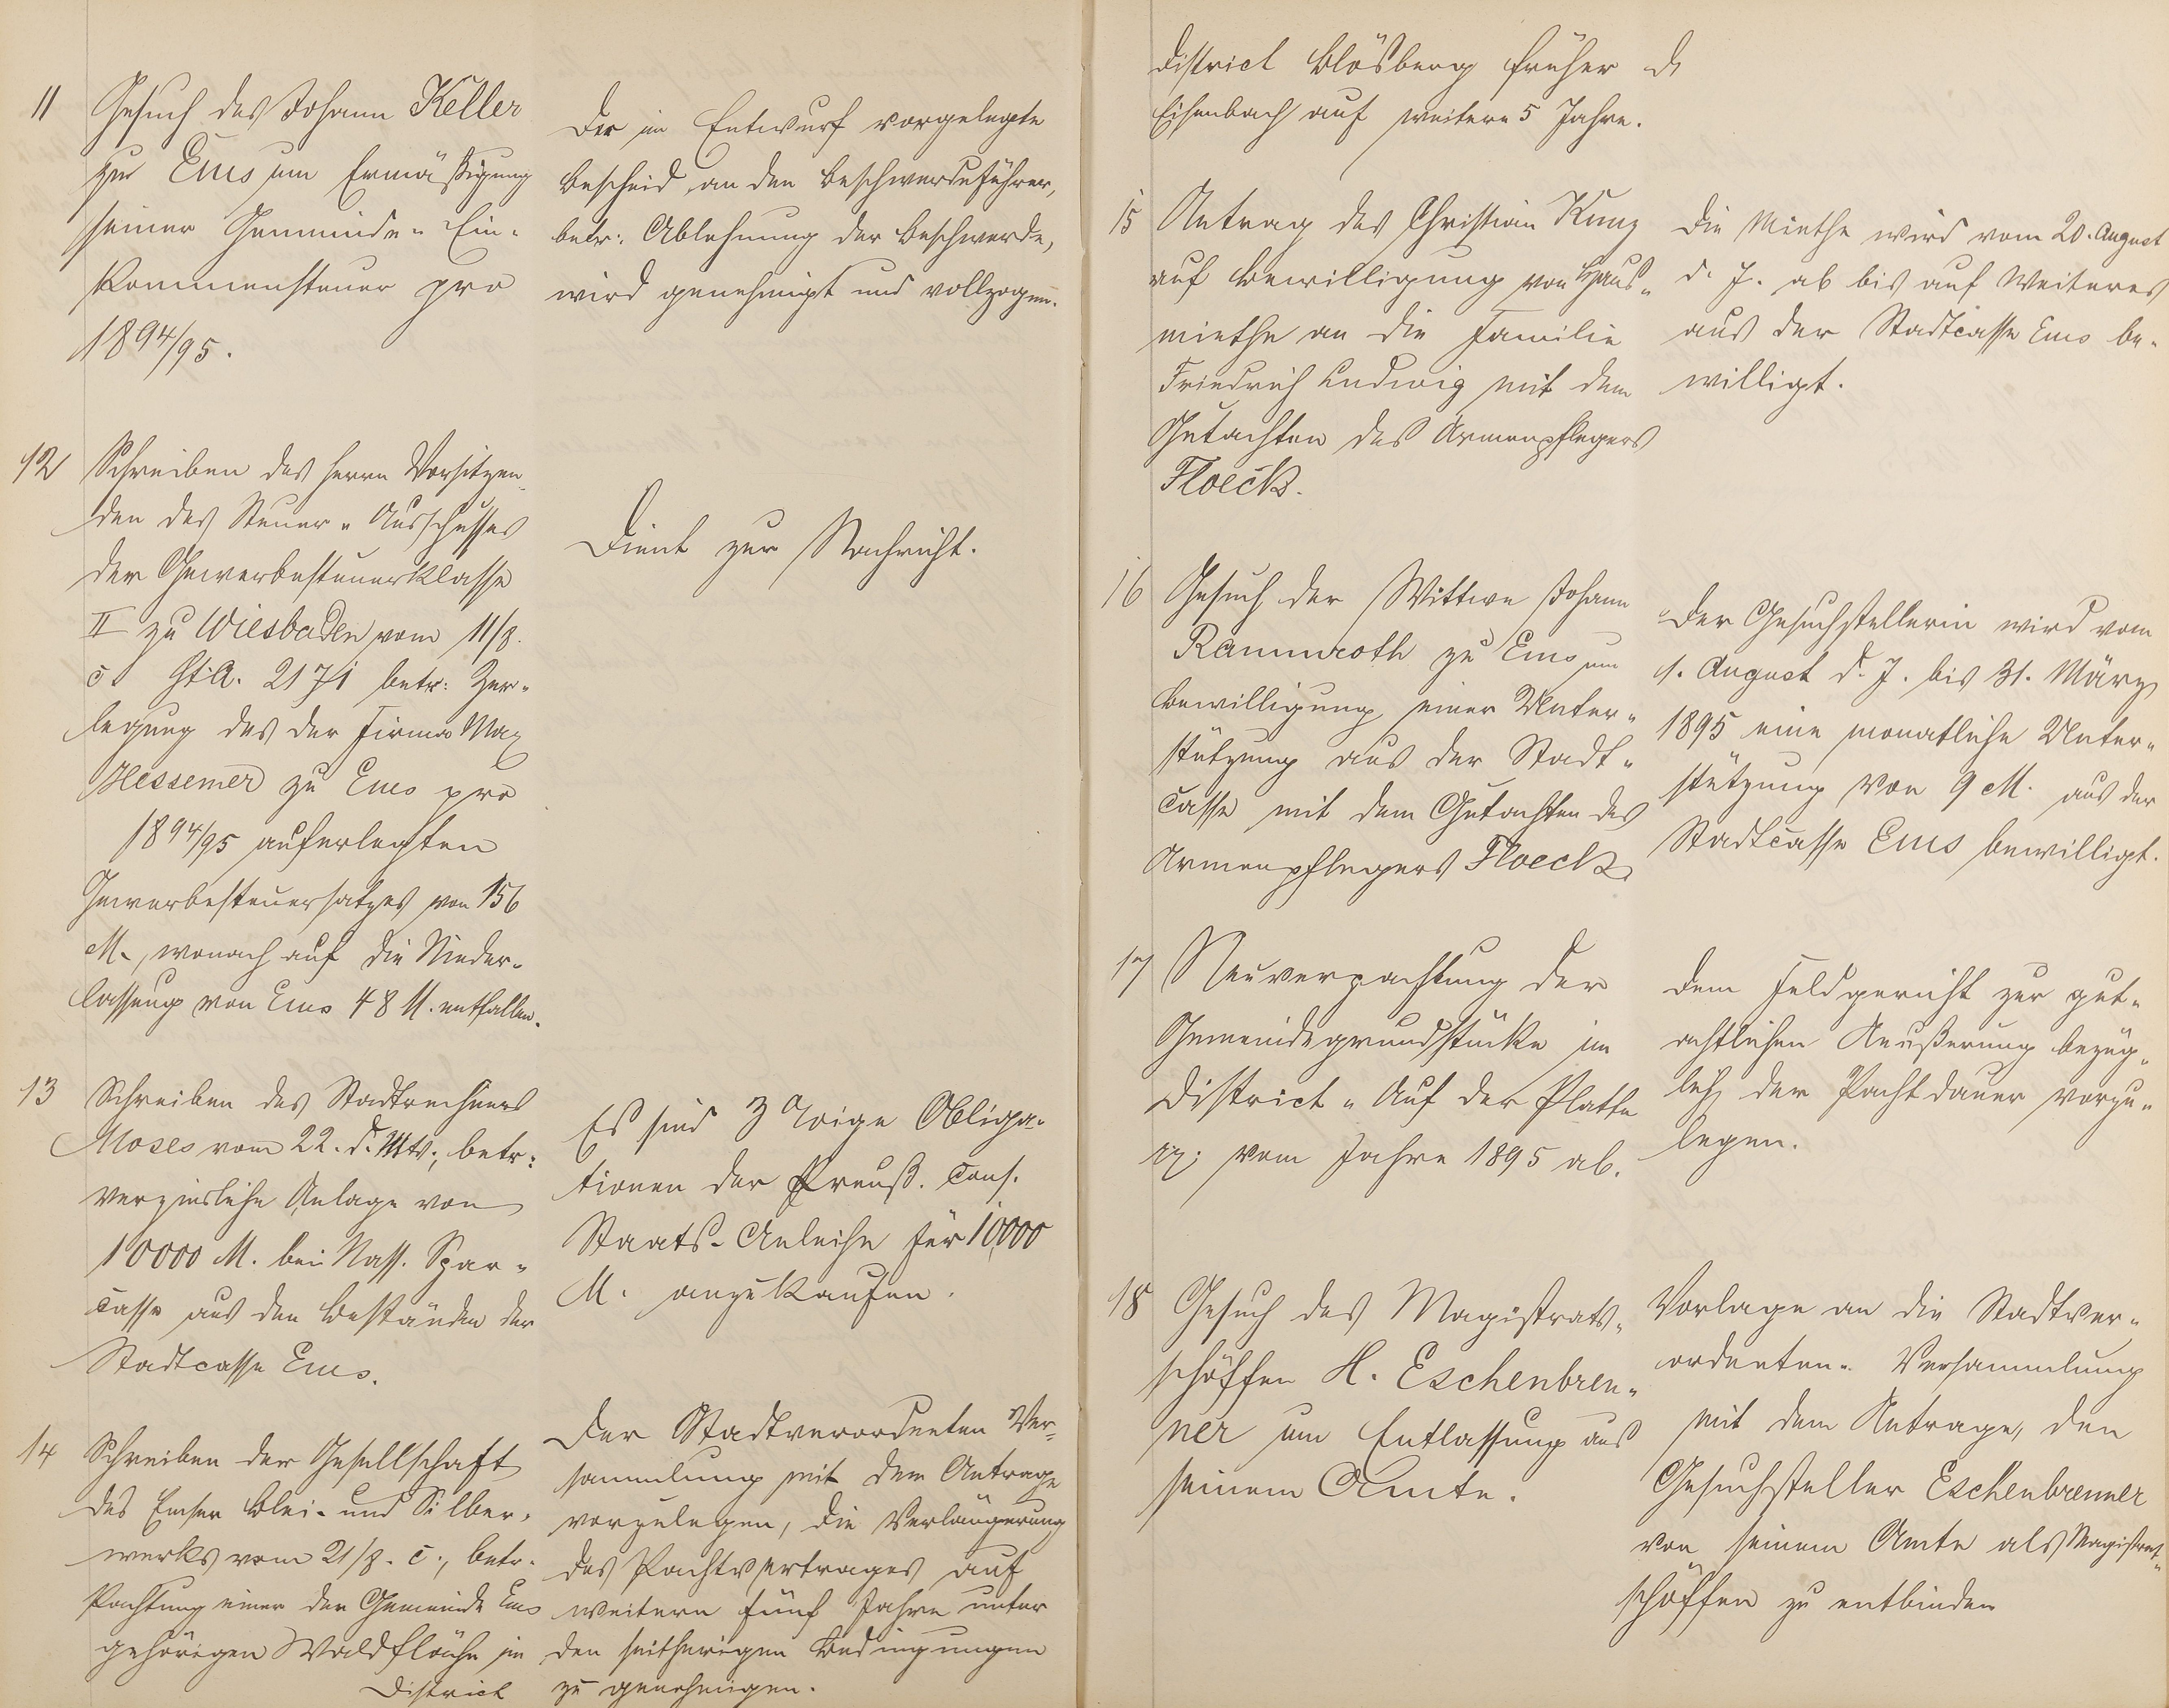 11 Gesuch des Johann Keller
zu Ems um Ermäßigung
seiner Gemeinde-Ein-
kommensteuer pro
1894/95.
Der im Entwurf vorgelegte
Bescheid an den Beschwerdeführer,
betr. Ablehnung der Beschwerde,
wird genehmigt und vollzogen.
12 Schreiben des Herrn Vorsitzen-
den des Steuer-Ausschusses
der Gewerbesteuerklasse
II zu Wiesbaden vom 11/8.
c. 2171 betr: Zer-
legung des der Firma Max
Hessemer zu Ems pro
1894/95 auferlegten
Gewerbesteuersatzes von 156
M., wonach auf die Nieder-
lassung von Ems 48 M. entfallen.
Dient zur Nachricht.
13 Schreiben des Stadtrechners
Moses vom 22. d. Mts., betr:
verzinsliche Anlage von
10000 M. bei Nass. Spar-
casse aus den Beständen der
Stadtcasse Ems.
Es sind 3 %ige Obliga-
tionen der Preuß. cons.
Staats-Anleihe für 10,000
M. anzukaufen.
14 Schreiben der Gesellschaft
des Emser Blei- und Silber-
werks vom 21/8. c., betr.
Pachtung einer der Gemeinde Ems
gehörigen Waldfläche im
District
Der Stadtverordneten Ver-
sammlung mit dem Antrage
vorzulegen, die Verlängerung
des Pachtvertrages auf
weitere fünf Jahre unter
den seitherigen Bedingungen
zu genehmigen.
District Blösberg früher
Eisenbach auf weitere 5 Jahre.
15 Antrag des Christian Kunz
auf Bewilligung von Haus-
miethe an die Familie
Friedrich Ludwig mit dem
Gutachten des Armenpflegers
Floeck.
Die Miethe wird vom 20. August
d. J. ab bis auf Weiteres
aus der Stadtcasse Ems be-
willigt.
16 Gesuch der Wittwe Johann
Rammroth zu Ems um
Bewilligung einer Unter-
stützung aus der Stadt-
casse mit dem Gutachten des
Armenpflegers Floeck
Der Gesuchstellerin wird vom
1. August d. J. bis 31. März
1895 eine monatliche Unter-
stützung von 9 M. aus der
Stadtcasse Ems bewilligt.
17 Neuverpachtung der
Gemeindegrundstücke im
District "Auf der Platte
vom Jahre 1895 ab.
Dem Feldgericht zur gut-
achtlichen Aeußerung bezüg-
lich der Pachtdauer vorzu-
legen.
18 Gesuch des Magistrats-
schöffen H. Eschenbren-
ner um Entlassung aus
seinem Amte.
Vorlage an die Stadtver-
ordneten-Versammlung
mit dem Antrage, den
Gesuchsteller Eschenbrenner
von seinem Amte als Magistrat-
schöffen zu entbinden